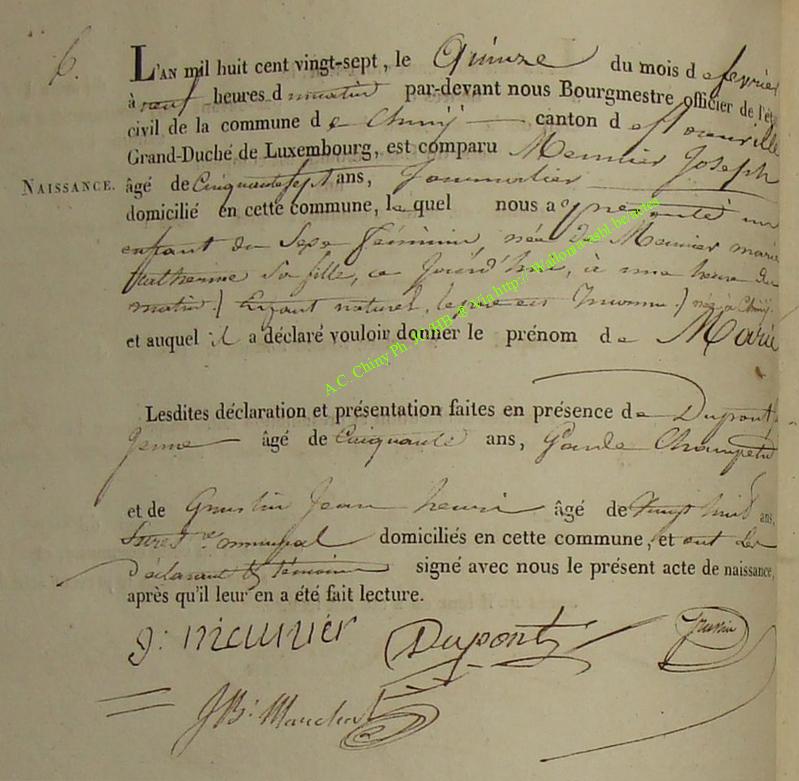 6.
L'AN mil huit cent vingt-sept, le Quinze du mois de février
à neuf heures d matin par-devant nous Bourgmestre officier de l'ét
civil de la commune de Chiny canton de florenville
Grand-Duché de Luxembourg, est comparu Meunier Joseph
NAISSANCE. âgé de Cinquante sept ans, Journalier
domicilié en cette commune, le quel nous a présenté un
enfant du Sexe féminin, née de Meunier marie
Catherinne Sa fille, ce Jourd'hui, à une heure du
matin / Enfant naturel, le père est Inconnu / née à Chiny
et auquel il a déclaré vouloir donner le prénom de Marie
Lesdites déclaration et présentation faites en présence de Dupont
âgé de Cinquante ans, Garde Champetre
et de Jean henri âgé de Vingt huit ans,
Communal domiciliés en cette commune, et ont les
Déclarant & témoins signé avec nous le présent acte de naissance,
après qu'il leur en a été fait lecture.
g: meunier Dupont
JB
A.C. Chiny Ph.